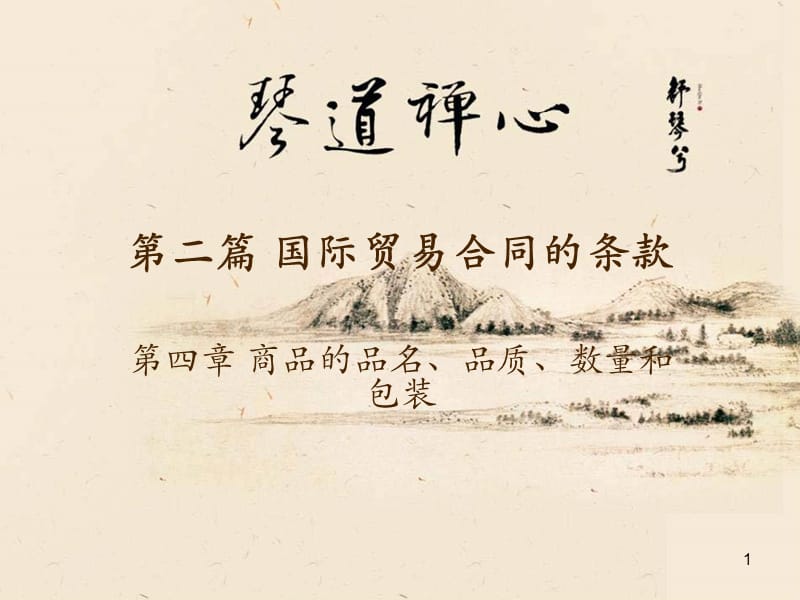 琴道禅心
舒琴兮
第二篇 国际贸易合同的条款
第四章 商品的品名、品质、数量和
包装
1